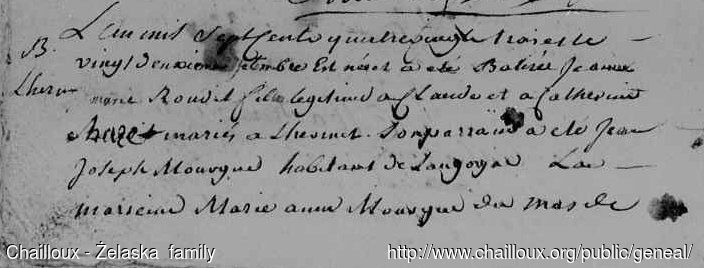 L'an mil sept cents quatre vingt trois et le
B. vingt deuxieme est née et a eté Batisée Jeanne
Lherm marie Roudil fille legitime a Claude et a Catherine
mariés a Lhermet. Son parrain a eté Jean
Joseph Mourgue habitant de Langogne La
marreine Marie anne Mourgue du mas de
Chailloux - Żelaska family
http://www.chailloux.org/public/geneal/